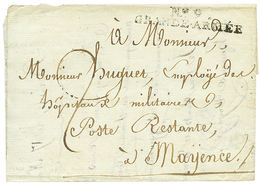 N.º 9
GRANDE-ARMÉE
A Monsieur,
Monsieur Huguet, Employé des
hôpitaux militaires
Poste Restante,
à Mayence.